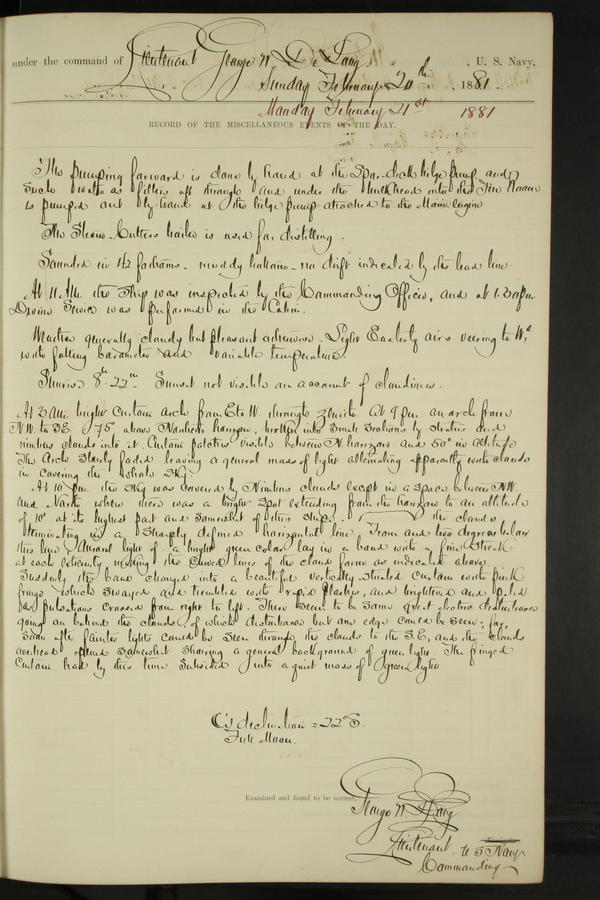 under the command of Lieutenant George W. De Long, U. S. Navy,
Sunday February 20th, 1881.
Monday February 21st 1881
RECORD OF THE MISCELLANEOUS EVENTS OF THE DAY.
The pumping forward is done by hand at the Spar-deck bilge pump and
such water as filters aft through and under the bulkhead into the Fire Room
is pumped out by hand at the bilge pump attached to the Main engine
The Steam Cutters boiler is used for distilling.
Sounded in 42 fathoms - muddy bottom - no drift indicated by the lead line
At 11. AM. the Ship was inspected by the Commanding Officer, and at 1.30 pm
Divine Service was performed in the Cabin.
Weather generally cloudy but pleasant otherwise. Light Easterly airs veering to Wd,
with falling barometer and variable temperature.
Sunrise 8h-22m Sunset not visible on account of cloudiness.
At 3 AM. bright Curtain Arch from E to W. through zenith. At 9 pm an arch from
N.W. to SE. 75° above Northern horizon, broken into small portions by stratus and
nimbus clouds into it Curtain patches visible between N horizon and 50° in altitude
The Arch slowly faded leaving a general mass of light alternating apparently with clouds
in covering the whole sky.
At 10 pm the sky was covered by Nimbus clouds except in a space between NW
and North where there was a bright spot extending from the horizon to an altitude
of 10° at its highest part and somewhat of this shape. the clouds
terminating in a sharply defined horizontal line. From and two degrees below
this line Auroral light of a bright green color lay in a band with a fine streak
at each extremity marking the curved lines of the cloud form as indicated above.
Suddenly the band changed into a beautiful vertically striated curtain with pink
fringe which swayed and trembled with rapid flashes, and brightened and paled
as pulsations crossed from right to left. There seem to be some great electric disturbance
going on behind the clouds of whose disturbance but one edge could be seen; for,
soon after fainter lights could be seen through the clouds to the S.E, and the clouds
overhead opened somewhat showing a general background of green light. The fringed
Curtain had by this time subsided into a quiet mass of green light
☾'s declination = 22° S.
Full Moon.
Examined and found to be correct.
George W. De Long
Lieutenant U. S. Navy
Commanding